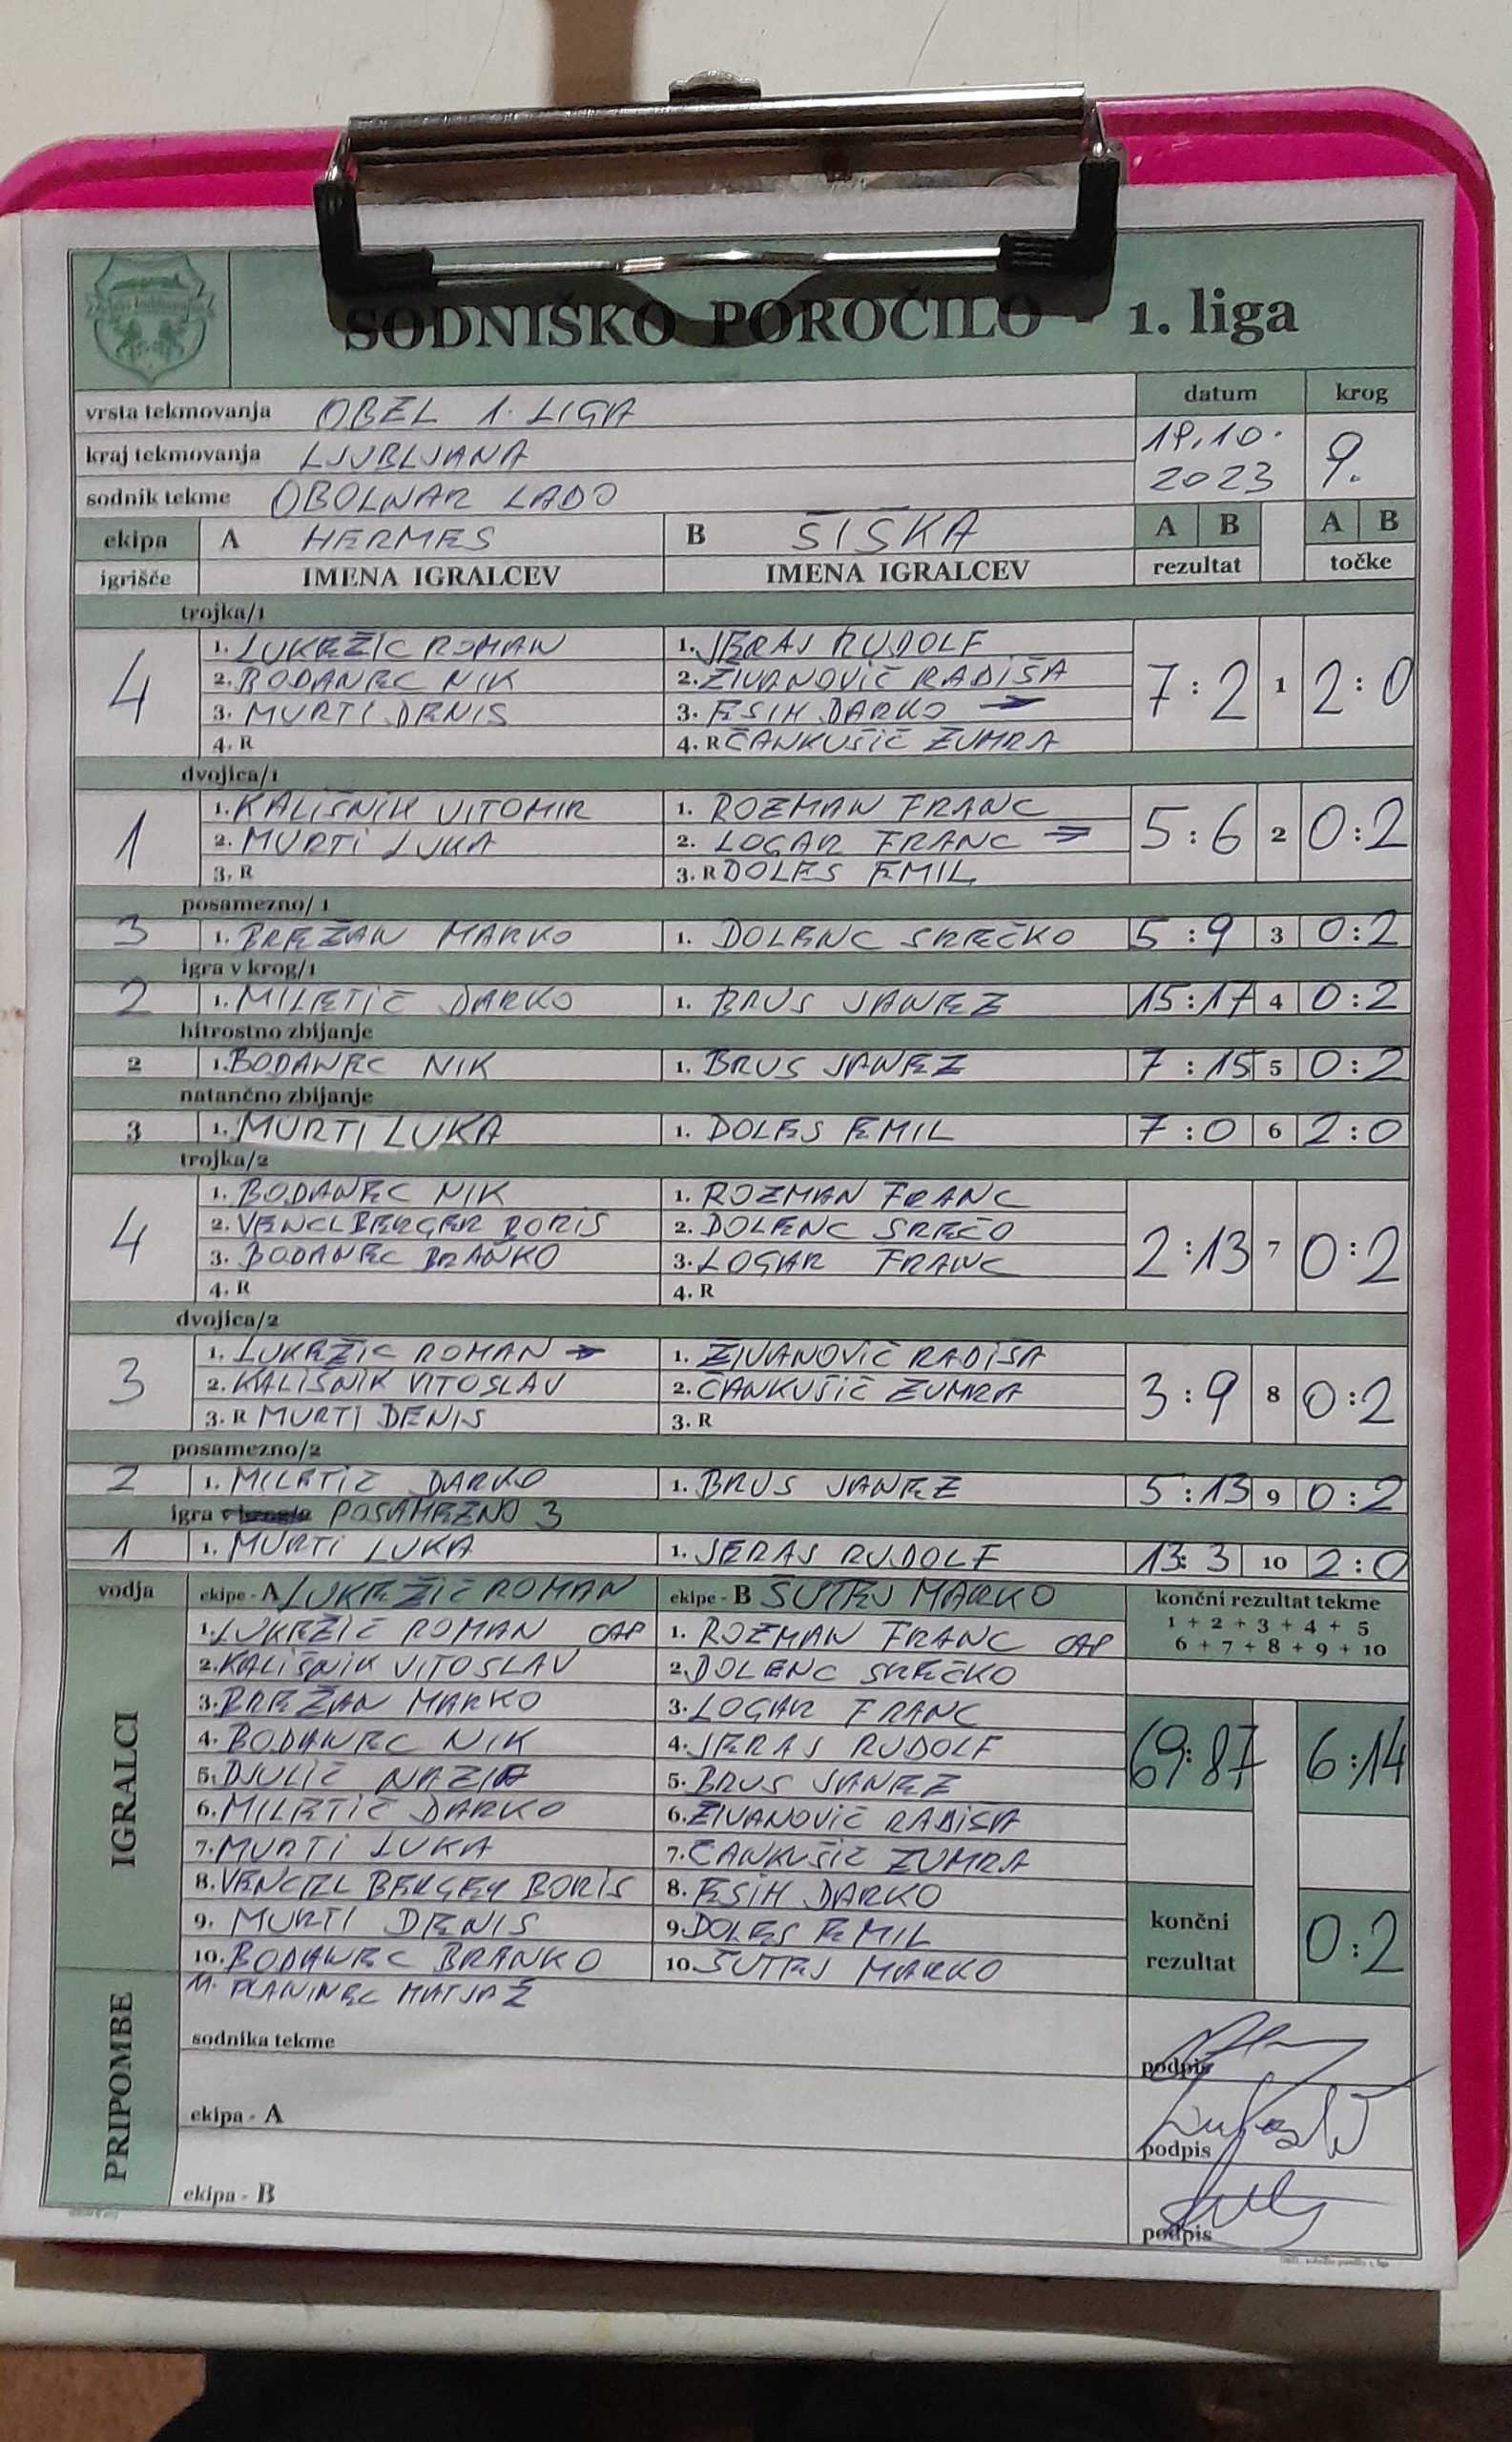 SODNIŠKO POROČILO - 1. liga
vrsta tekmovanja OBZL 1. LIGA datum krog
kraj tekmovanja LJUBLJANA 19.10. 9.
sodnik tekme OBOLNAR LADO 2023
ekipa A HERMES B ŠIŠKA A B A B
igrišče IMENA IGRALCEV IMENA IGRALCEV rezultat točke
trojka/1
1. LUKEŽIC ROMAN 1. JERAS RUDOLF
4 2. BODANEC NIK 2. ŽIVANOVIČ RADIŠA 7 : 2 1 2 : 0
3. MURTI DENIS 3. ESIH DARKO →
4. R 4. R ČANKUŠIČ ZUMRA
dvojica/1
1. KALIŠNIK VITOMIR 1. ROZMAN FRANC
1 2. MURTI LUKA 2. LOGAR FRANC → 5 : 6 2 0 : 2
3. R 3. R DOLES EMIL
posamezno/ 1
3 1. BREŽAN MARKO 1. DOLENC SREČKO 5 : 9 3 0 : 2
igra v krog/1
2 1. MILETIČ DARKO 1. BRUS JANEZ 15 : 17 4 0 : 2
hitrostno zbijanje
2 1. BODANEC NIK 1. BRUS JANEZ 7 : 15 5 0 : 2
natančno zbijanje
3 1. MURTI LUKA 1. DOLES EMIL 7 : 0 6 2 : 0
trojka/2
1. BODANEC NIK 1. ROZMAN FRANC
4 2. VENCLBERGER BORIS 2. DOLENC SREČO 2 : 13 7 0 : 2
3. BODANEC BRANKO 3. LOGAR FRANC
4. R 4. R
dvojica/2
1. LUKEŽIC ROMAN → 1. ŽIVANOVIČ RADIŠA
3 2. KALIŠNIK VITOSLAV 2. ČANKUŠIČ ZUMRA 3 : 9 8 0 : 2
3. R MURTI DENIS 3. R
posamezno/2
2 1. MILETIČ DARKO 1. BRUS JANEZ 5 : 13 9 0 : 2
igra POSAMEZNO 3
1 1. MURTI LUKA 1. JERAS RUDOLF 13 : 3 10 2 : 0
vodja ekipe - A LUKEŽIČ ROMAN ekipe - B ŠUTEJ MARKO končni rezultat tekme
1 + 2 + 3 + 4 + 5
6 + 7 + 8 + 9 + 10
IGRALCI
1. LUKEŽIČ ROMAN CAP 1. ROZMAN FRANC CAP
2. KALIŠNIK VITOSLAV 2. DOLENC SREČKO
3. BREŽAN MARKO 3. LOGAR FRANC
4. BODANEC NIK 4. JERAS RUDOLF 69 : 87 6 : 14
5. DJULIČ 5. BRUS JANEZ
6. MILETIČ DARKO 6. ŽIVANOVIČ RADIŠA
7. MURTI LUKA 7. ČANKUŠIČ ZUMRA
8. VENCELBERGER BORIS 8. ESIH DARKO
9. MURTI DENIS 9. DOLES EMIL končni
10. BODANEC BRANKO 10. ŠUTEJ MARKO rezultat 0 : 2
11. PLANINEC MATJAŽ
PRIPOMBE
sodnika tekme podpis
ekipa - A podpis
ekipa - B podpis